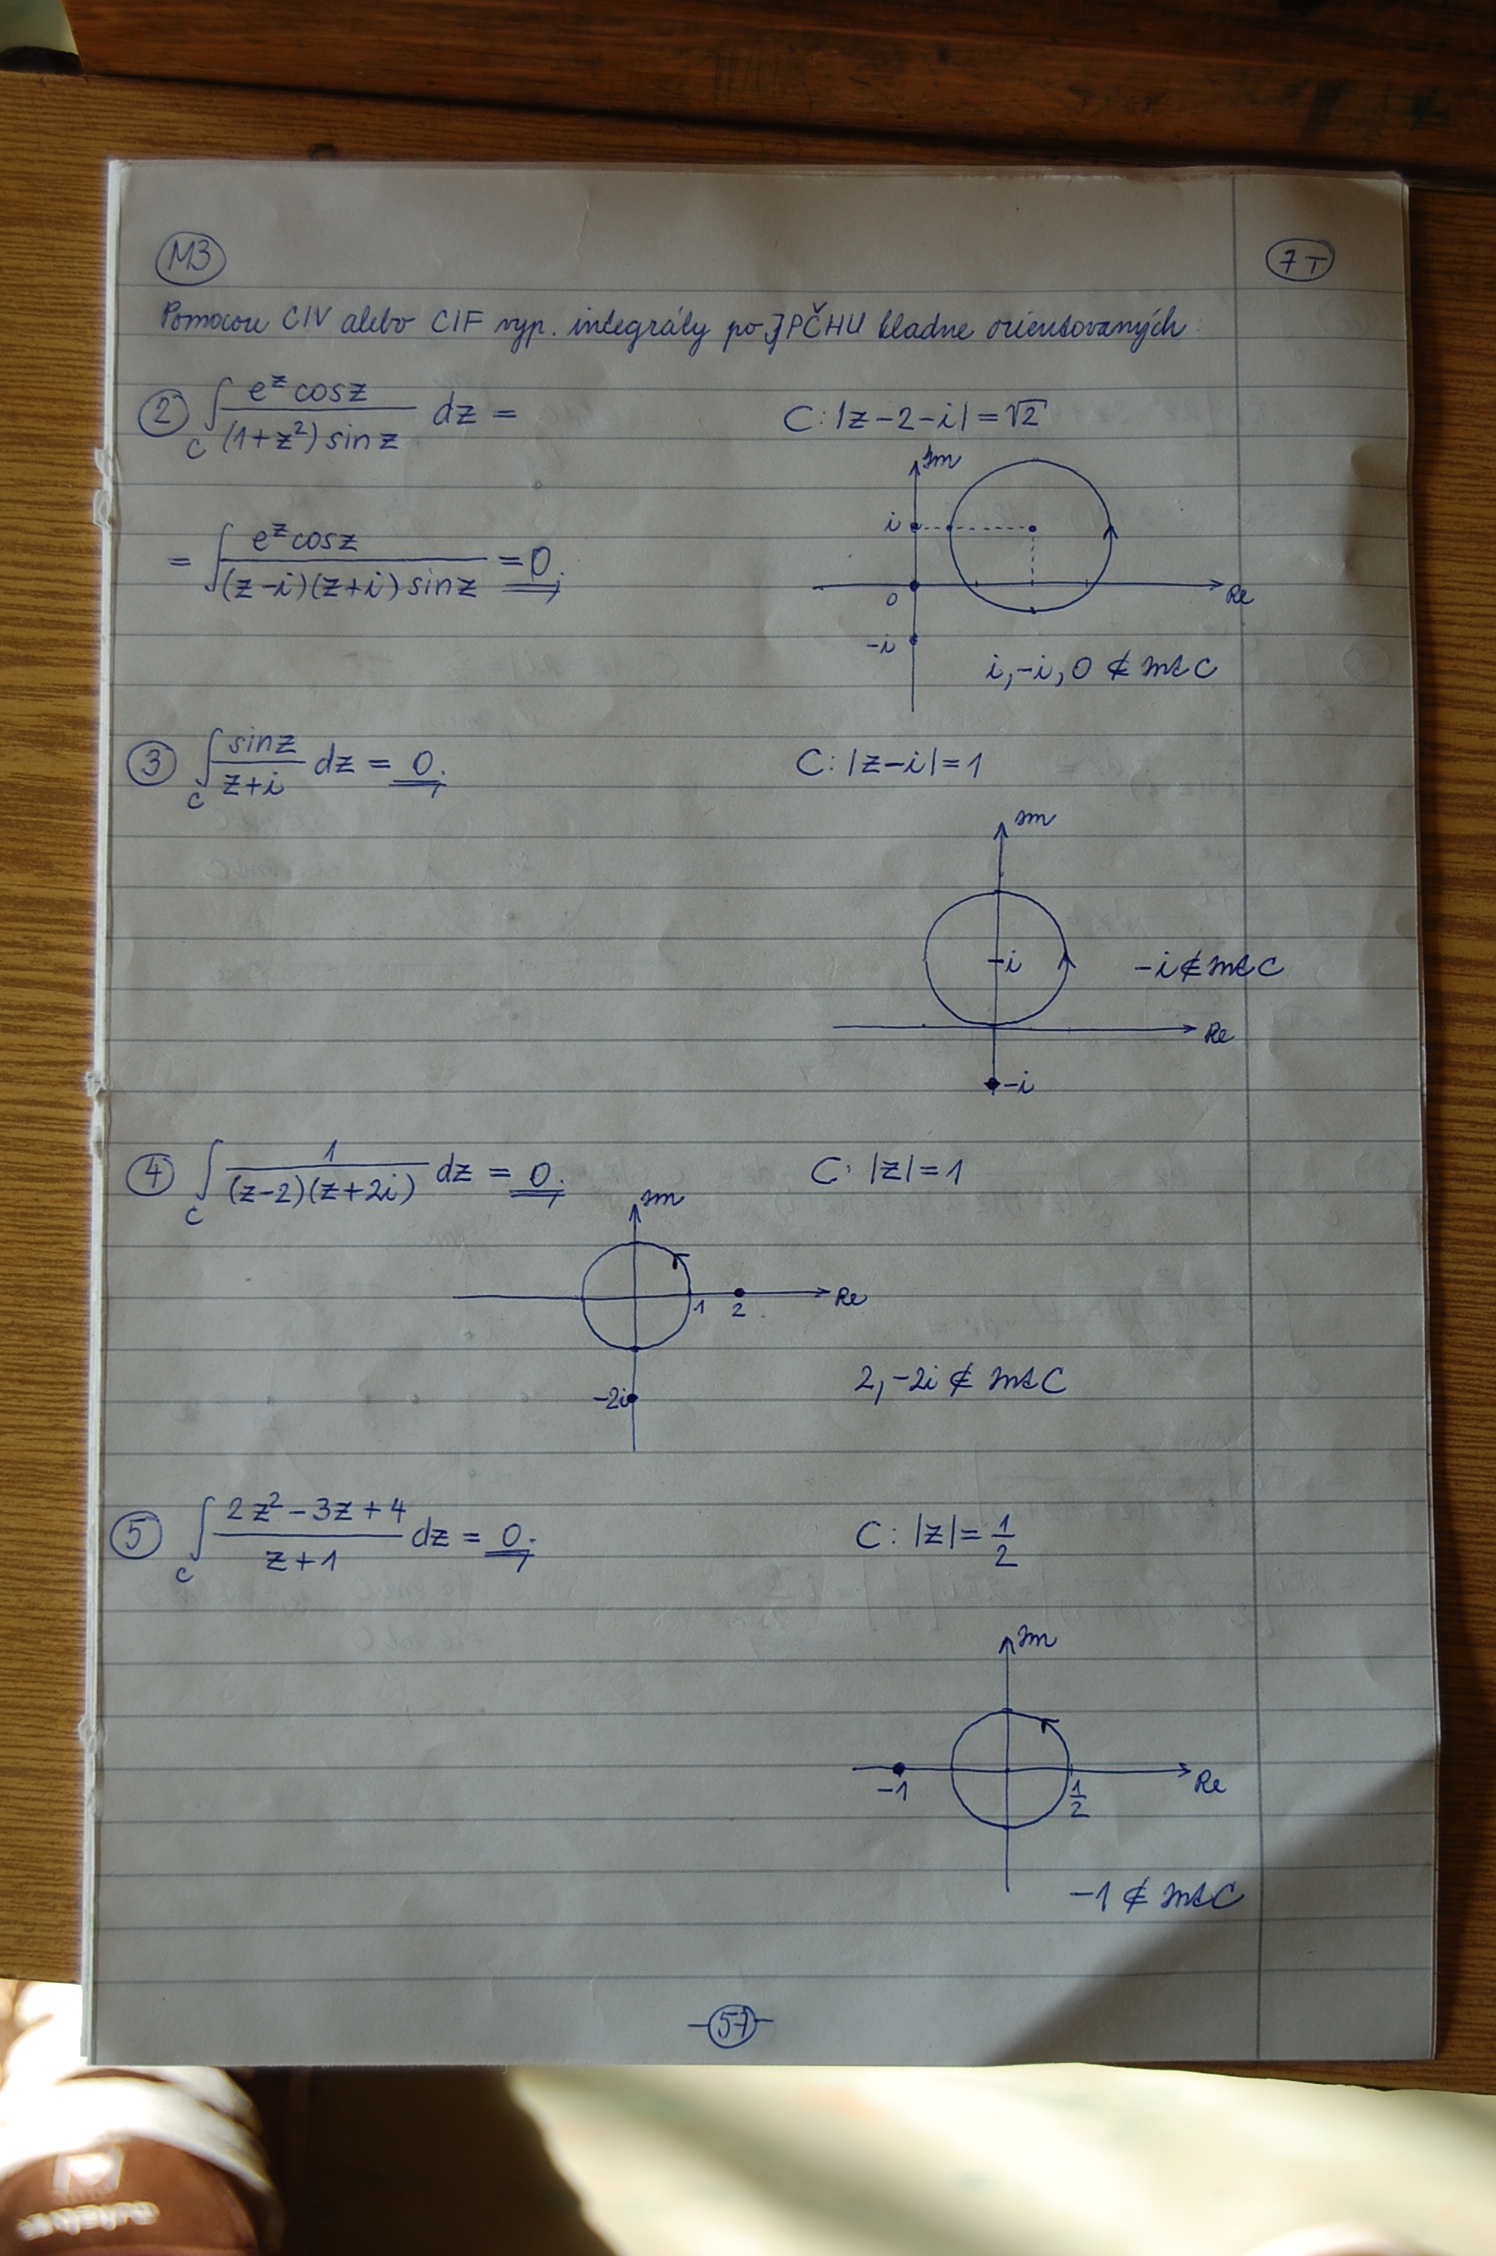 M3
7T
Pomocou CIV alebo CIF vyp. integrály po JPČHU kladne orientovaných:
② ∫_C (e^z cos z)/((1+z²) sin z) dz =
C: |z-2-i| = √2
Im
i
0
Re
-i
= ∫ (e^z cos z)/((z-i)(z+i) sin z) = 0.
i, -i, 0 ∉ int C
③ ∫_C (sin z)/(z+i) dz = 0.
C: |z-i| = 1
Im
i
-i ∉ int C
Re
-i
④ ∫_C 1/((z-2)(z+2i)) dz = 0.
C: |z| = 1
Im
1
2
Re
-2i
2, -2i ∉ int C
⑤ ∫_C (2z²-3z+4)/(z+1) dz = 0.
C: |z| = 1/2
Im
-1
1/2
Re
-1 ∉ int C
-57-